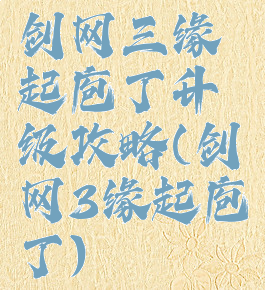 剑网三缘
起庖丁升
级攻略(剑
网3缘起庖
丁)